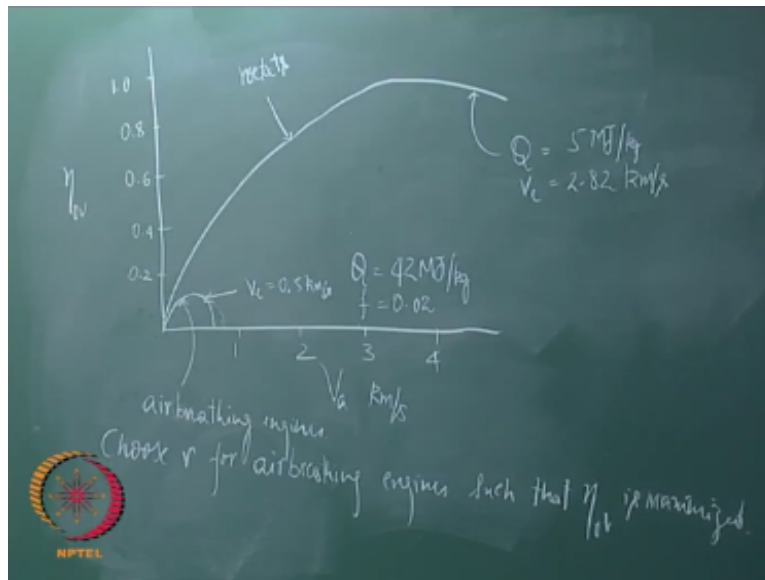 1.0
rockets
0.8
Q = 5 MJ/kg
Ve = 2.82 km/s
0.6
ηov
0.4
0.2
Ve = 0.5 km/s
Q = 42 MJ/kg
f = 0.02
1 2 3 4
Va km/s
airbreathing engines
Choose r for airbreathing engines such that ηov is maximized.
NPTEL